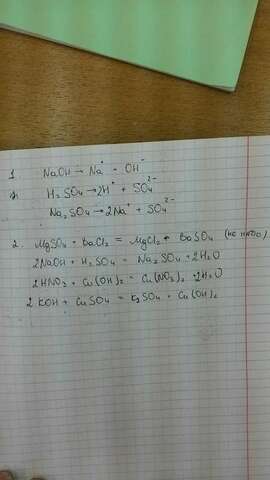 1 NaOH → Na⁺ - OH⁻
H₂SO₄ → 2H⁺ + SO₄²⁻
Na₂SO₄ → 2Na⁺ + SO₄²⁻
2. MgSO₄ + BaCl₂ = MgCl₂ + BaSO₄
2NaOH + H₂SO₄ = Na₂SO₄ + 2H₂O
2HNO₃ + Cu(OH)₂ = Cu(NO₃)₂ + 2H₂O
2KOH + CuSO₄ = K₂SO₄ + Cu(OH)₂